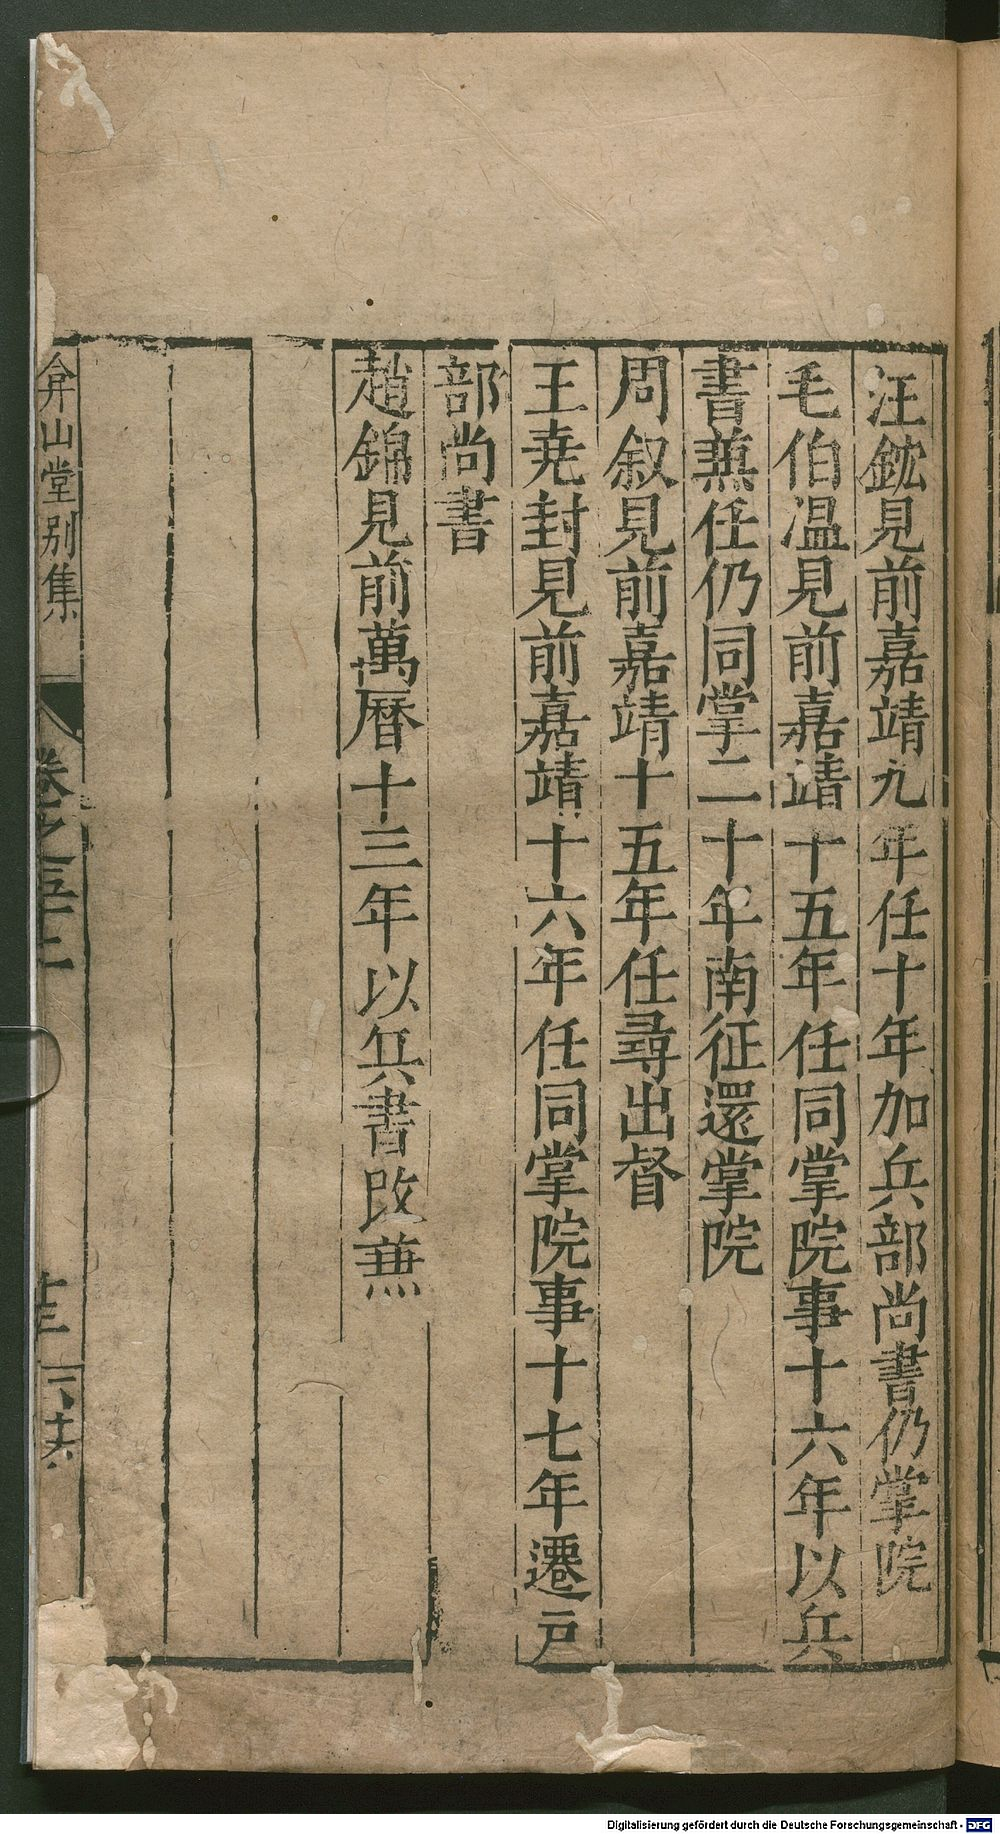 汪鋐見前嘉靖九年任十年加兵部尚書仍掌院
毛伯温見前嘉靖十五年任同掌院事十六年以兵
書兼任仍同掌二十年南征還掌院
周叙見前嘉靖十五年任尋出督
王尭封見前嘉靖十六年任同掌院事十七年遷戸
部尚書
趙錦見前萬曆十三年以兵書改兼
弇山堂别集
卷之五十二
Digitalisierung gefördert durch die Deutsche Forschungsgemeinschaft - DFG